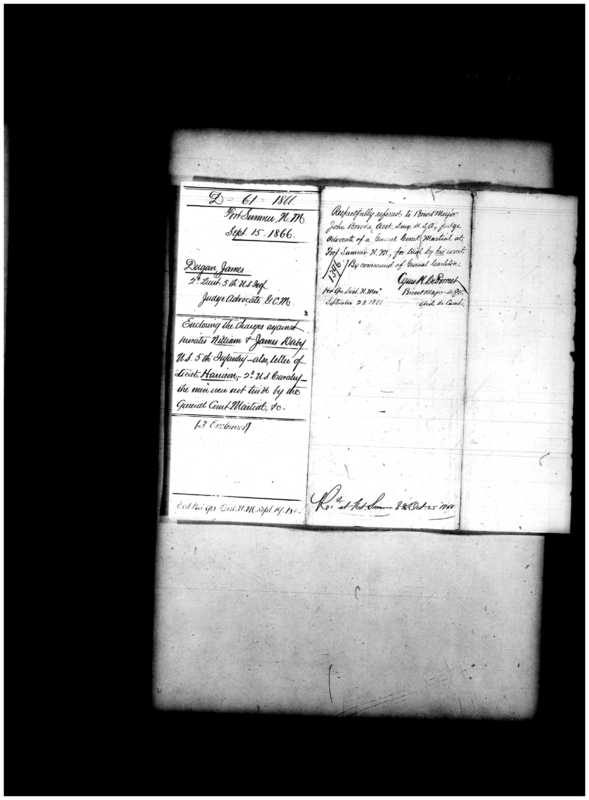 D = 61 = 1866
Fort Sumner, N. M.
Sept. 15. 1866.
Deigan James
2d Lieut. 5th U.S. Inf
Judge Advocate G.C.M.
Enclosing the Charges against
privates William & James Darby
U.S. 5th Infantry — also, letter of
Lieut. — U.S. Cavalry —
the men were not tried by the
General Court Martial, &c.
[3 Enclosures]
Dist. N.M. Sept. 19.
Respectfully referred to Brevet Major
John Brooke, Asst. Surg. U.S.A., Judge
Advocate of a General Court Martial at
Fort Sumner N. M., for trial by his court
By command of General Carleton:
Cyrus H. De Forrest
Brevet Major
Aide de Camp
Hd. Qrs. Dist. N. Mex.
September 23 1866
Recd at Fort Sumner N.M. Oct. 25 1866